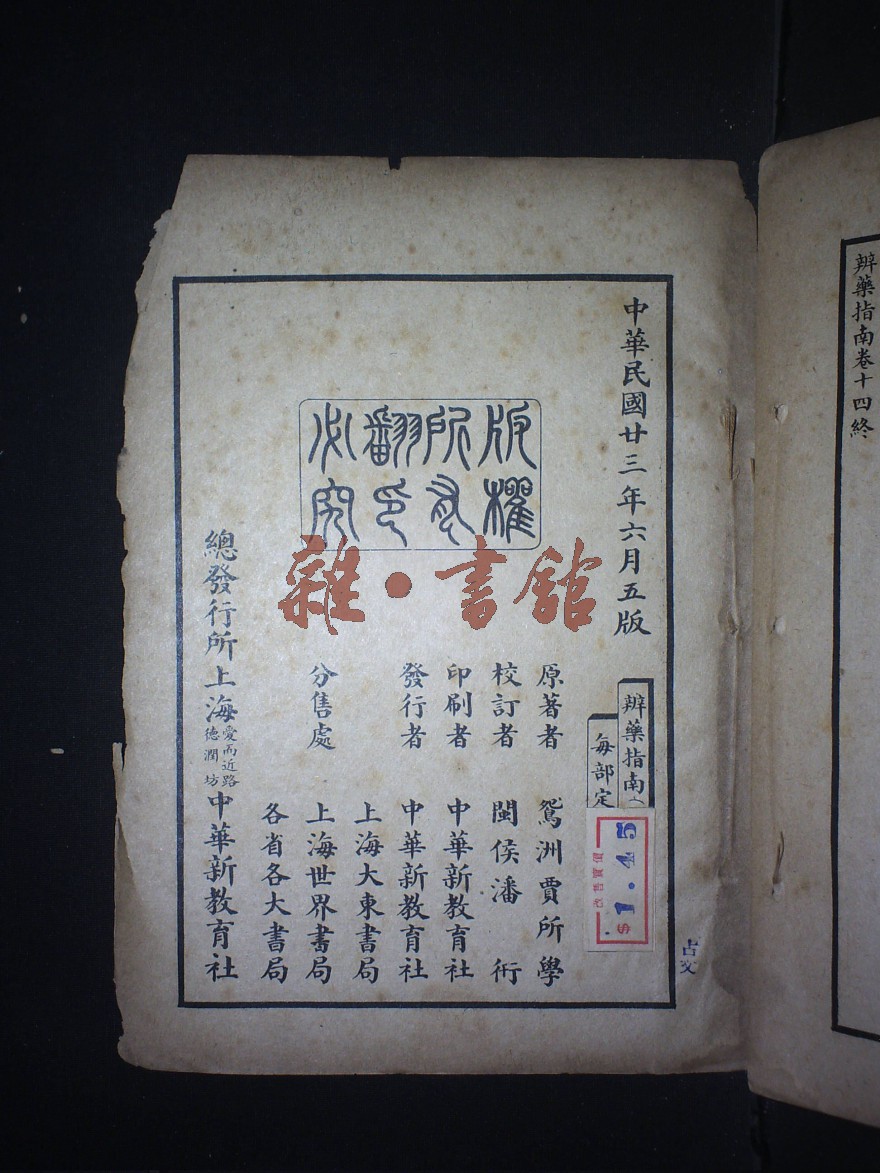 辨藥指南卷十四終
中華民國廿三年六月五版
辨藥指南
每部定
改售實價
$1.45
版權
所有
翻印
必究
原著者 鴛洲賈所學
校訂者 閩侯潘術
印刷者 中華新教育社
發行者 中華新教育社
上海大東書局
分售處 上海世界書局
各省各大書局
總發行所上海愛而近路德潤坊中華新教育社
雜·書館
古文